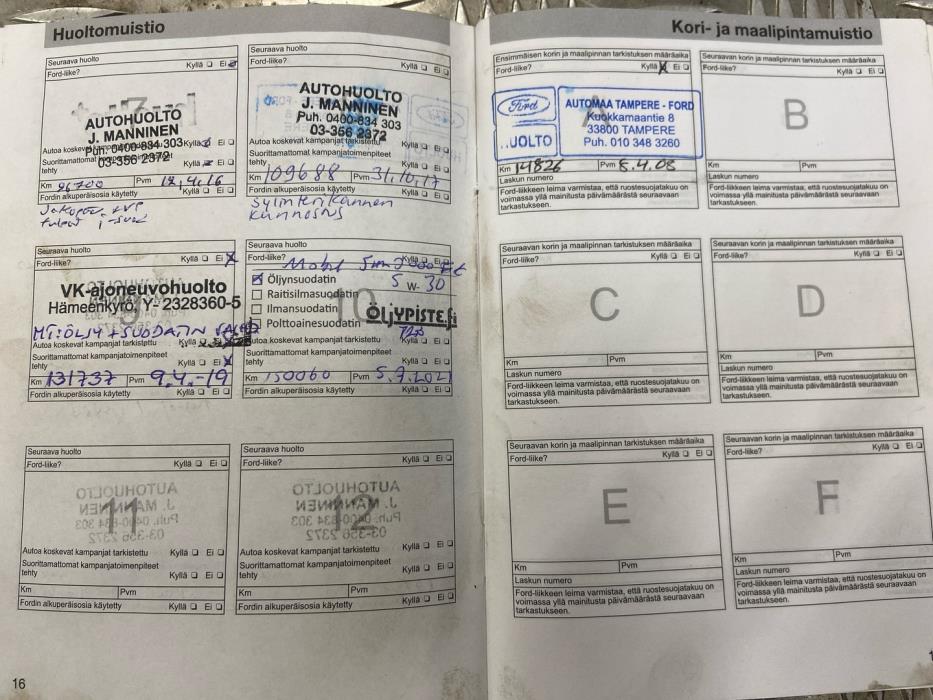 Huoltomuistio
Seuraava huolto
Ford-liike? Kyllä Ei
AUTOHUOLTO
J. MANNINEN
Puh. 0400-834 303
03-356 2372
Autoa koskevat kampanjat tarkistettu Kyllä Ei
Suorittamattomat kampanjatoimenpiteet
tehty Kyllä Ei
Km 96700 Pvm 12.4.16
Fordin alkuperäisosia käytetty Kyllä Ei
Seuraava huolto
Ford-liike? Kyllä Ei
AUTOHUOLTO
J. MANNINEN
Puh. 0400-834 303
03-356 2372
Autoa koskevat kampanjat tarkistettu
Suorittamattomat kampanjatoimenpiteet
tehty Kyllä Ei
Km 109688 Pvm 31.10.17
Fordin alkuperäisosia käytetty Kyllä Ei
Sylinterikannen
kunnostus
Seuraava huolto
Ford-liike? Kyllä Ei
VK-ajoneuvohuolto
Hämeenkyrö, Y- 2328360-5
MT:ÖLJY + SUODATIN
Autoa koskevat kampanjat tarkistettu
Suorittamattomat kampanjatoimenpiteet
tehty Kyllä Ei
Km 131737 Pvm 9.4.-19
Fordin alkuperäisosia käytetty Kyllä Ei
Seuraava huolto
Ford-liike? Kyllä Ei
Mobil
Öljynsuodatin 5 W- 30
Raitisilmasuodatin
Ilmansuodatin 10
Polttoainesuodatin ÖLJYPISTE.fi
Autoa koskevat kampanjat tarkistettu Kyllä Ei
Suorittamattomat kampanjatoimenpiteet
tehty Kyllä Ei
Km 150060 Pvm 5.9.2021
Fordin alkuperäisosia käytetty Kyllä Ei
Seuraava huolto
Ford-liike? Kyllä Ei
11
Autoa koskevat kampanjat tarkistettu Kyllä Ei
Suorittamattomat kampanjatoimenpiteet
tehty Kyllä Ei
Km Pvm
Fordin alkuperäisosia käytetty Kyllä Ei
Seuraava huolto
Ford-liike? Kyllä Ei
12
Autoa koskevat kampanjat tarkistettu Kyllä Ei
Suorittamattomat kampanjatoimenpiteet
tehty Kyllä Ei
Km Pvm
Fordin alkuperäisosia käytetty Kyllä Ei
16
Kori- ja maalipintamuistio
Ensimmäisen korin ja maalipinnan tarkistuksen määräaika
Ford-liike? Kyllä Ei
A
Ford
AUTOMAA TAMPERE - FORD
Kuokkamaantie 8
33800 TAMPERE
Puh. 010 348 3260
..UOLTO
Km 14826 Pvm 8.4.08
Laskun numero
Ford-liikkeen leima varmistaa, että ruostesuojatakuu on
voimassa yllä mainitusta päivämäärästä seuraavaan
tarkastukseen.
Seuraavan korin ja maalipinnan tarkistuksen määräaika
Ford-liike? Kyllä Ei
B
Km Pvm
Laskun numero
Ford-liikkeen leima varmistaa, että ruostesuojatakuu on
voimassa yllä mainitusta päivämäärästä seuraavaan
tarkastukseen.
Seuraavan korin ja maalipinnan tarkistuksen määräaika
Ford-liike? Kyllä Ei
C
Km Pvm
Laskun numero
Ford-liikkeen leima varmistaa, että ruostesuojatakuu on
voimassa yllä mainitusta päivämäärästä seuraavaan
tarkastukseen.
Seuraavan korin ja maalipinnan tarkistuksen määräaika
Ford-liike? Kyllä Ei
D
Km Pvm
Laskun numero
Ford-liikkeen leima varmistaa, että ruostesuojatakuu on
voimassa yllä mainitusta päivämäärästä seuraavaan
tarkastukseen.
Seuraavan korin ja maalipinnan tarkistuksen määräaika
Ford-liike? Kyllä Ei
E
Km Pvm
Laskun numero
Ford-liikkeen leima varmistaa, että ruostesuojatakuu on
voimassa yllä mainitusta päivämäärästä seuraavaan
tarkastukseen.
Seuraavan korin ja maalipinnan tarkistuksen määräaika
Ford-liike? Kyllä Ei
F
Km Pvm
Laskun numero
Ford-liikkeen leima varmistaa, että ruostesuojatakuu on
voimassa yllä mainitusta päivämäärästä seuraavaan
tarkastukseen.